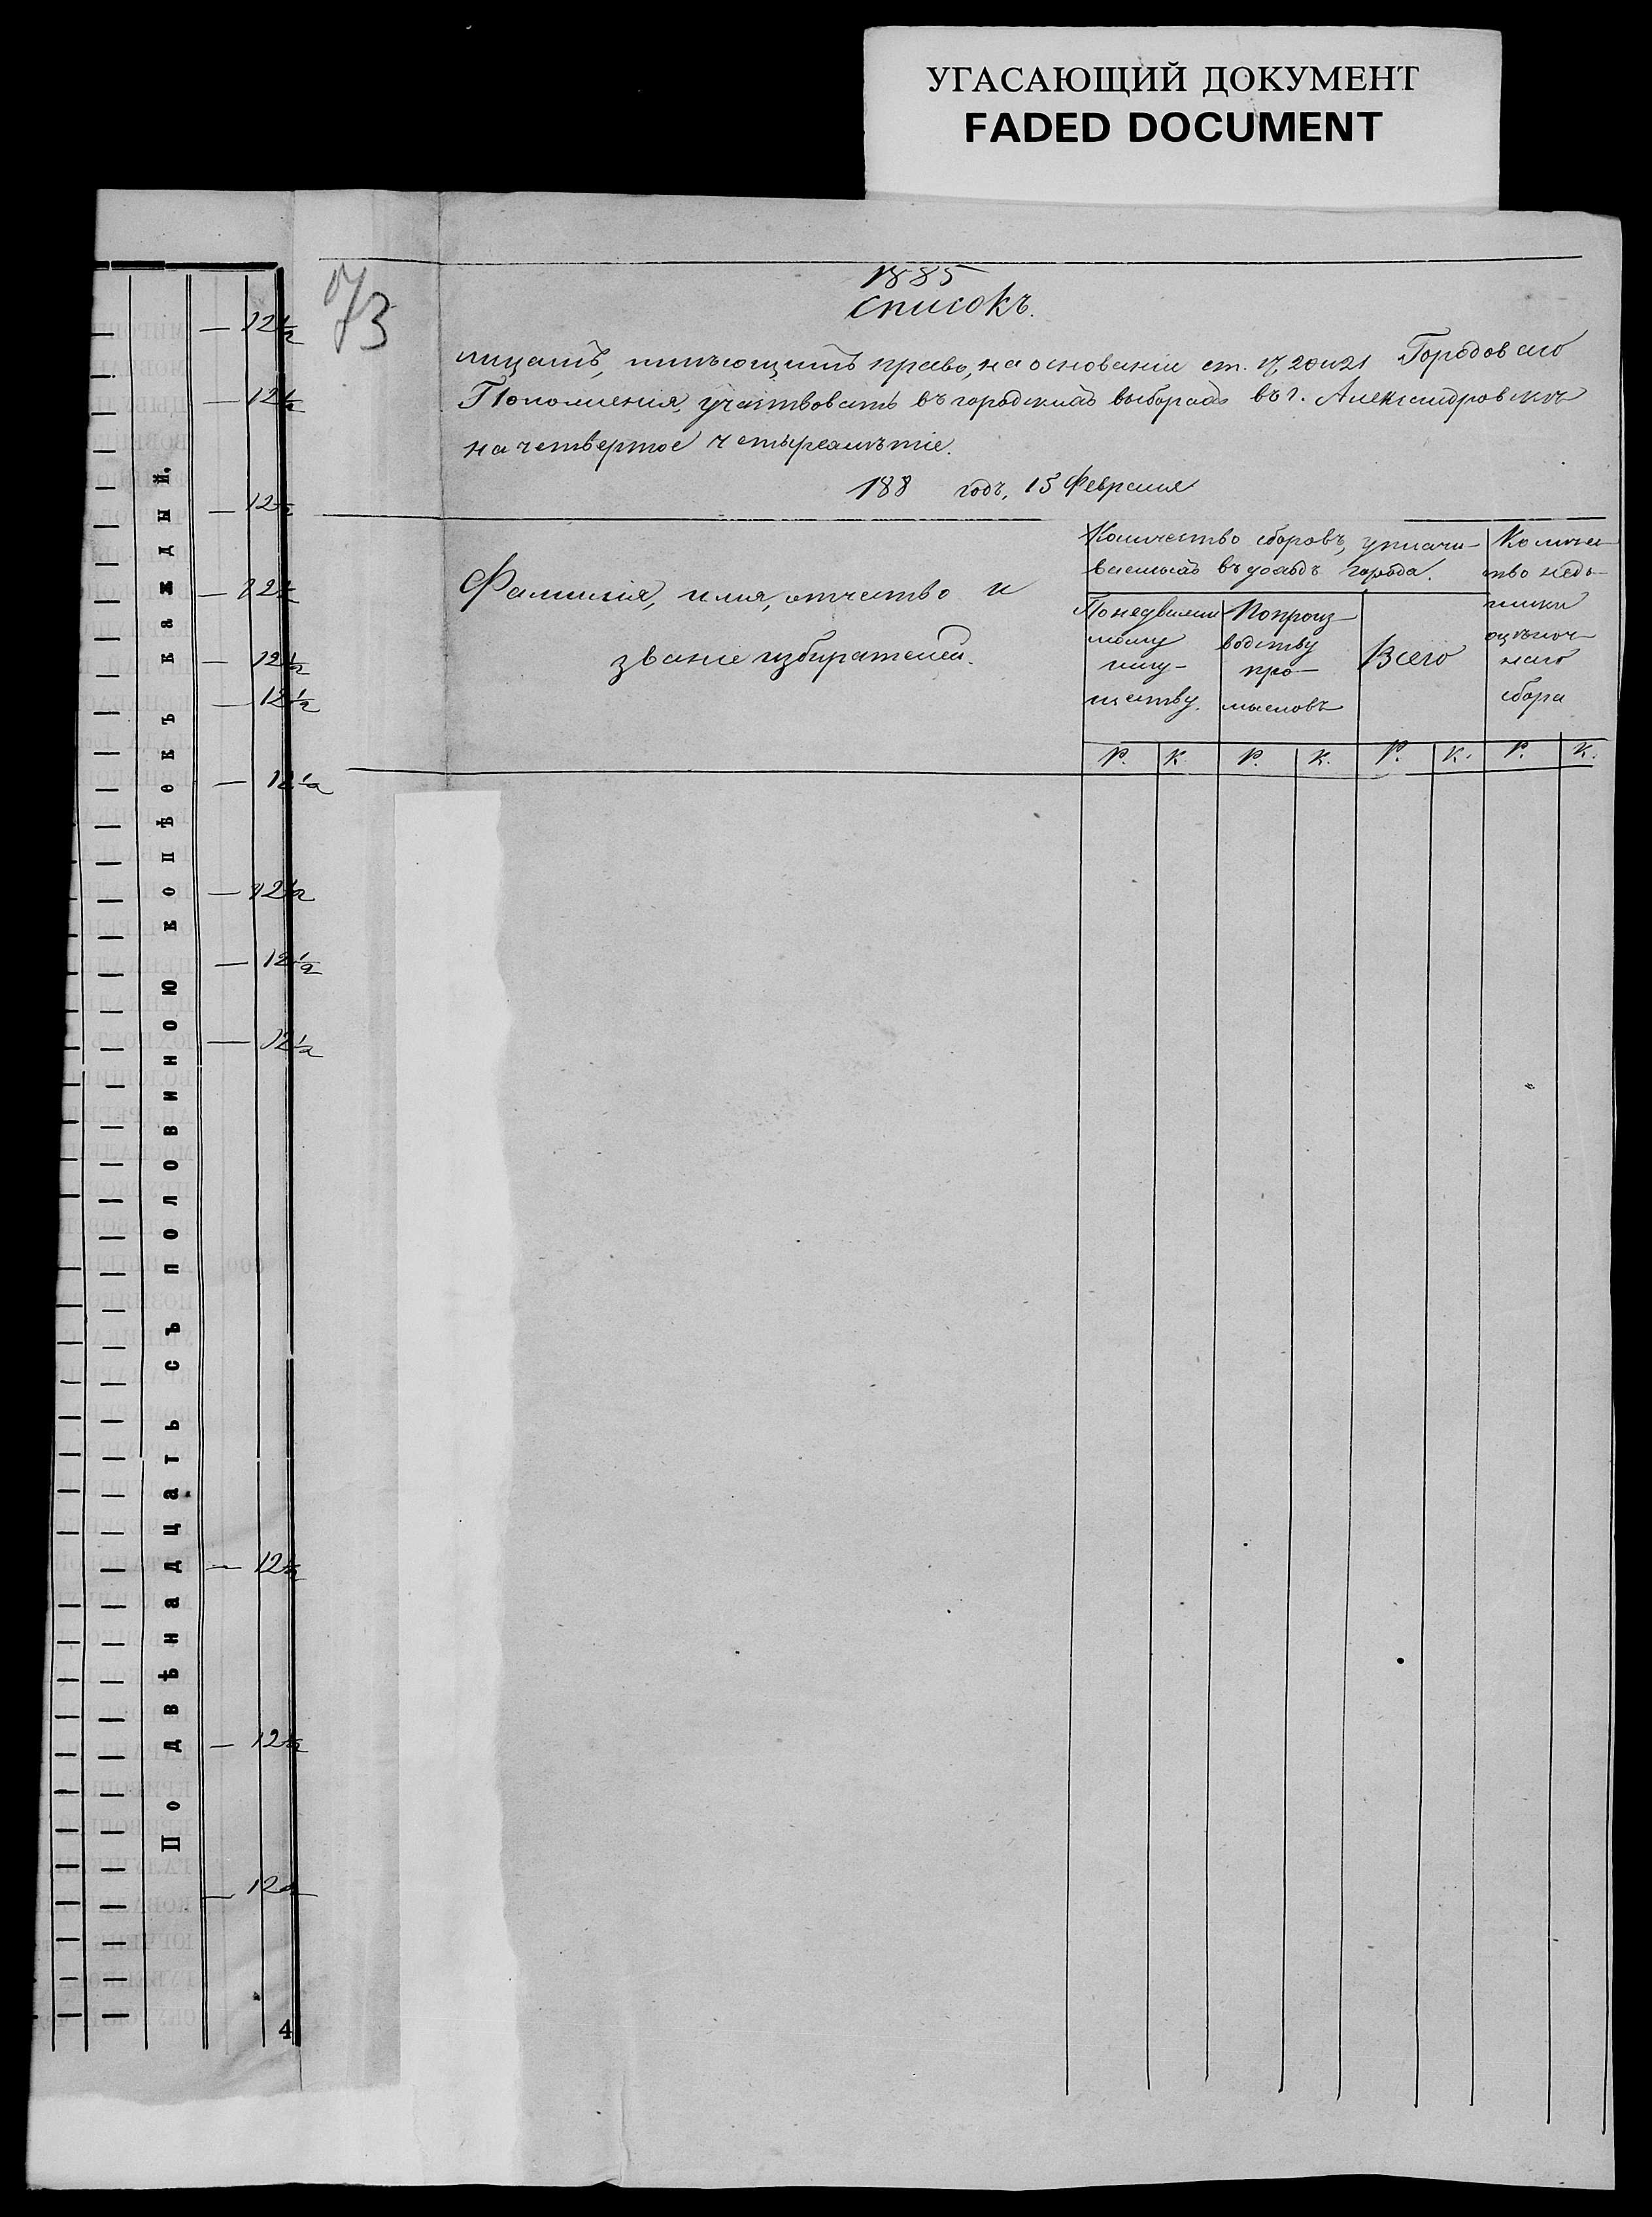 УГАСАЮЩИЙ ДОКУМЕНТ
FADED DOCUMENT
73
1885
Списокъ.
лицамъ, имѣющимъ право, на основаніи ст. 17, 20 и 21 Городоваго
Положенія, участвовать въ городскихъ выборахъ въ г. Александровскѣ
на четвертое четырехлѣтіе.
188 годъ, 15 Февраля
Фамилія, имя, отчество и
званіе избирателей.
Количество сборовъ, уплачи-
ваемыхъ въ доходъ города.
По недвижи
мому
иму-
ществу.
По произ-
водству
про-
мысловъ
Всего
Количес
тво недо-
имки
оцѣноч-
наго
сбора
Р. К. Р. К. Р. К. Р. К.
По двѣнадцать съ половиною копѣекъ каждый.
— 12½
— 12½
— 12½
— 12½
— 12½
— 12½
— 12½
— 12½
— 12½
— 12½
— 12½
— 12½
— 12½
4